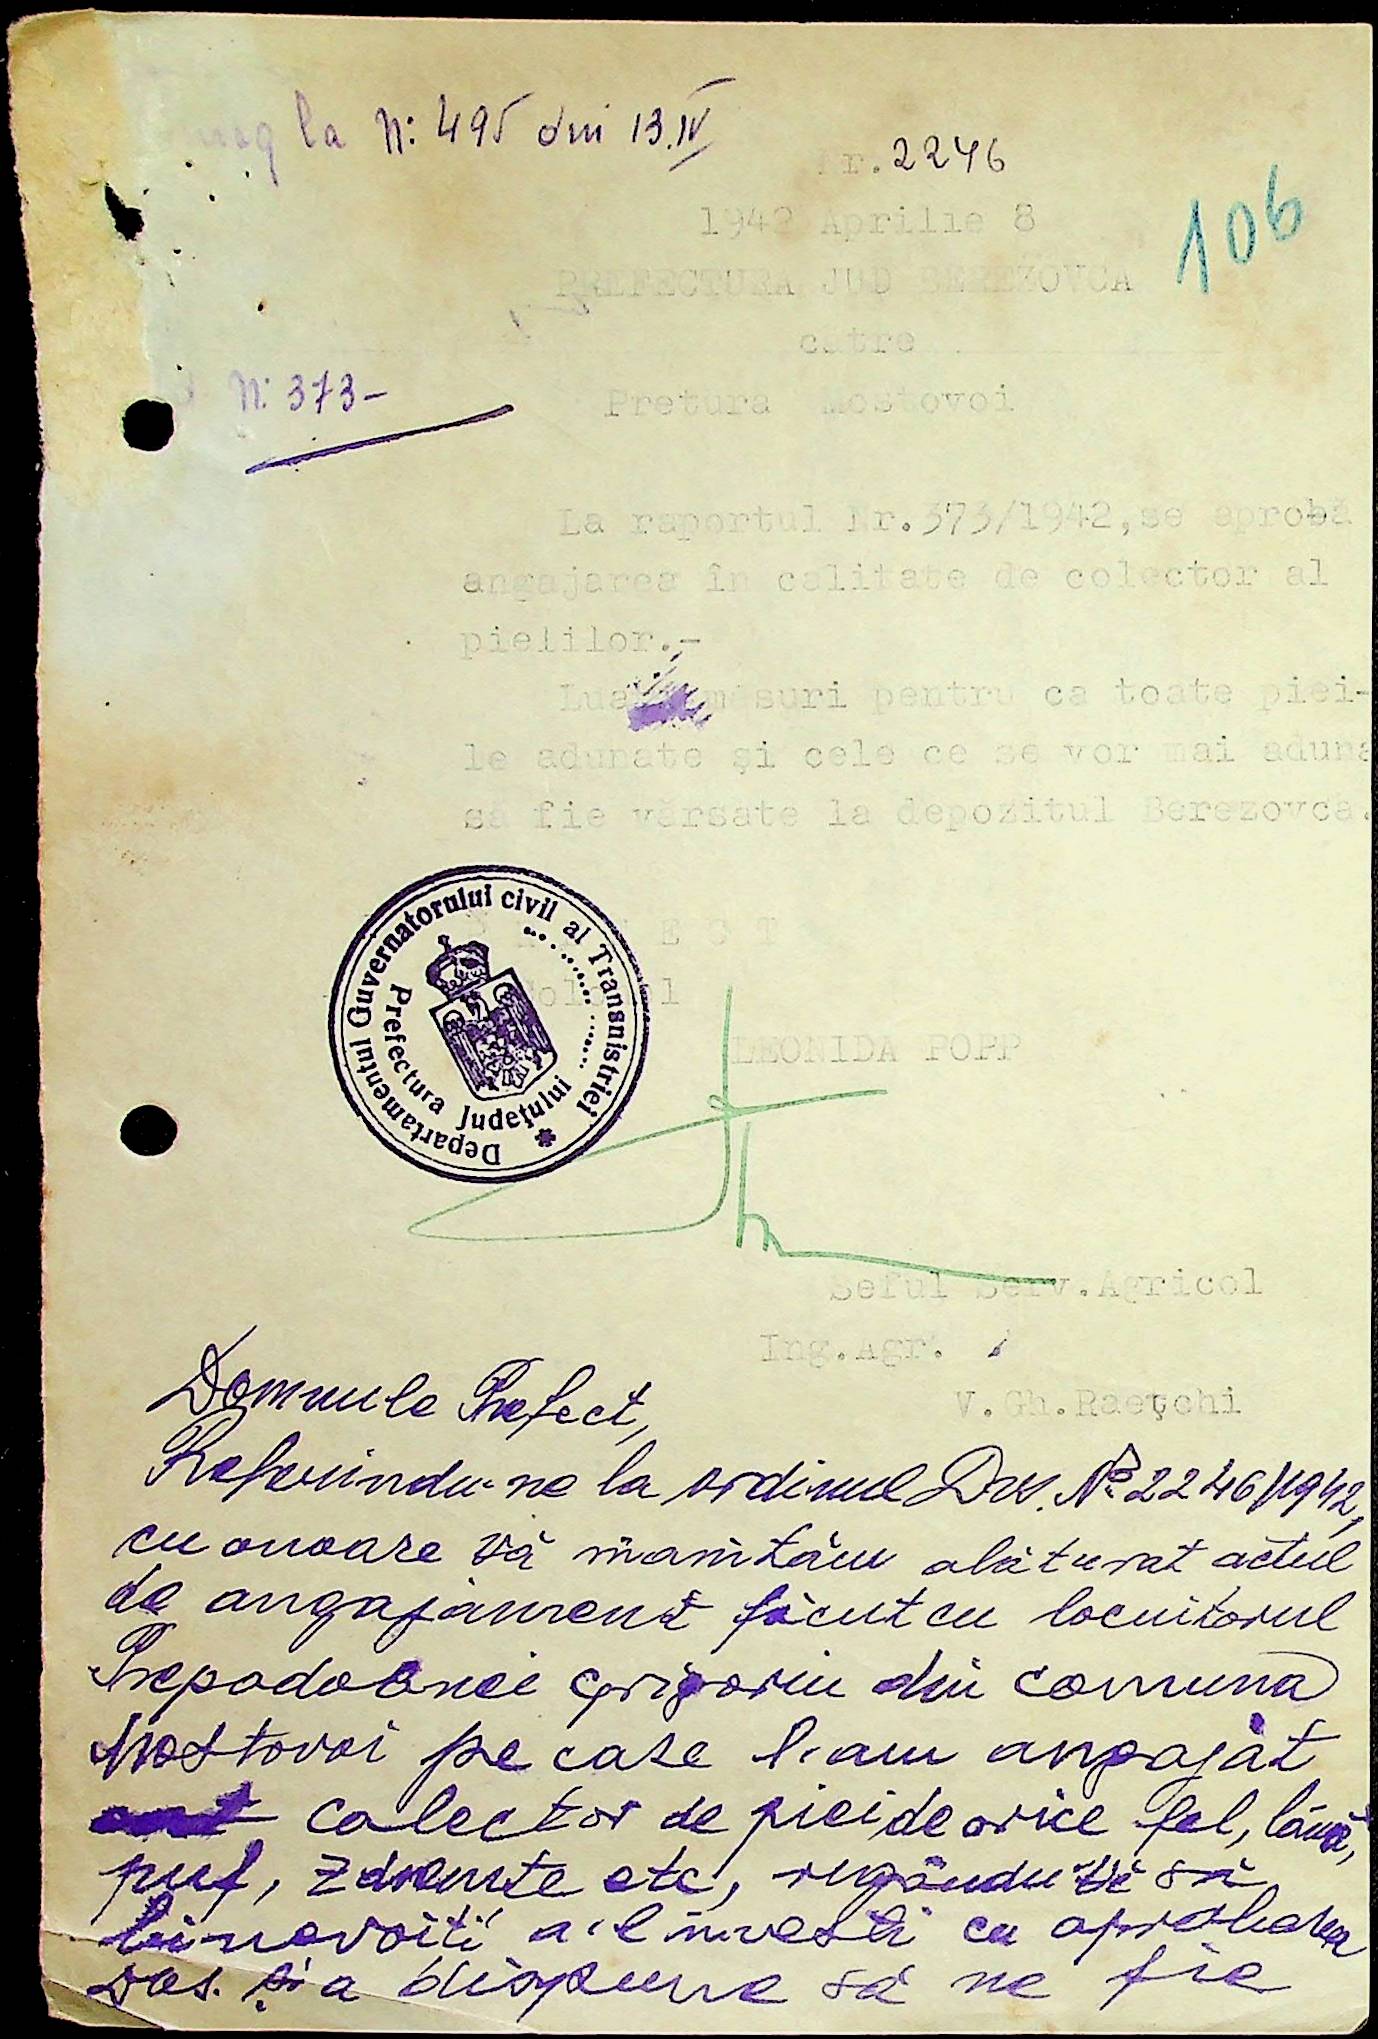 la N: 495 din 13.IV
Nr. 2246
106
1942 Aprilie 8
PREFECTURA JUD BEREZOVCA
catre
N: 373-
Pretura Mostovoi
La raportul Nr.373/1942,se aprobă
angajarea în calitate de colector al
pieililor.-
Luați măsuri pentru ca toate piei-
le adunate și cele ce se vor mai aduna
să fie vărsate la depozitul Berezovca.
PREFECT
Colonel
LEONIDA POPP
Departamentul Guvernatorului civil al Transnistriei
Prefectura Județului
Seful Serv.Agricol
Ing.Agr.
V. Gh.Raețchi
Domnule Prefect,
Referindu-ne la ordinul Dvs. No 2246/1942,
cu onoare vă înaintăm alăturat actul
de angajament făcut cu locuitorul
Prepodobnei Grigoriu din comuna
Mostovoi pe care l-am angajat
colector de piei de orice fel, lână,
puf, zdrențe etc, rugându-vă să
binevoiți a-l investi cu aprobarea
Dvs. și a dispune să ne fie